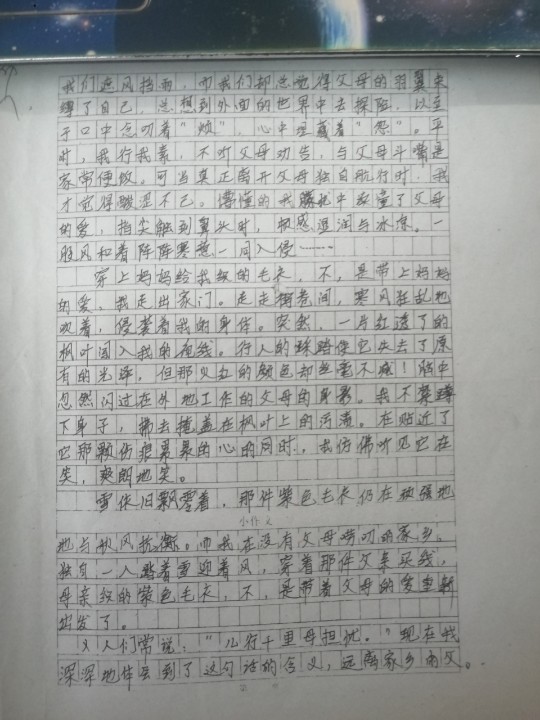 我们遮风挡雨，而我们却总觉得父母的羽翼束
缚了自己，总想到外面的世界中去探险，以至
于口中念叨着“烦”，心中埋藏着“怨”。平
时，我行我素，不听父母劝告，与父母斗嘴是
家常便饭。可当真正离开父母独自航行时，我
才觉得酸涩不已。懵懂的我朦胧中读懂了父母
的爱，指尖触到鼻头时，顿感湿润与冰凉。一
股风和着阵阵寒意一同入侵……
穿上妈妈给我织的毛衣，不，是带上妈妈
的爱，我走出家门。走走街巷间，寒风狂乱地
吹着，侵袭着我的身体。突然，一片红透了的
枫叶闯入我的视线。行人的踩踏使它失去了原
有的光泽，但那火红的颜色却丝毫不减！脑中
忽然闪过在外地工作的父母的身影。我不禁蹲
下身子，拂去掩盖在枫叶上的污渍。在贴近了
它那颗伤痕累累的心的同时，我仿佛听见它在
笑，爽朗地笑。
雪依旧飘零着，那件紫色毛衣仍在顽强地
小作文
地与秋风抗衡。而我在没有父母唠叨的家乡，
独自一人踏着雪迎着风，穿着那件父亲买线，
母亲织的紫色毛衣，不，是带着父母的爱重新
出发了。
人们常说：“儿行千里母担忧。”现在我
深深地体会到了这句话的含义，远离家乡的父